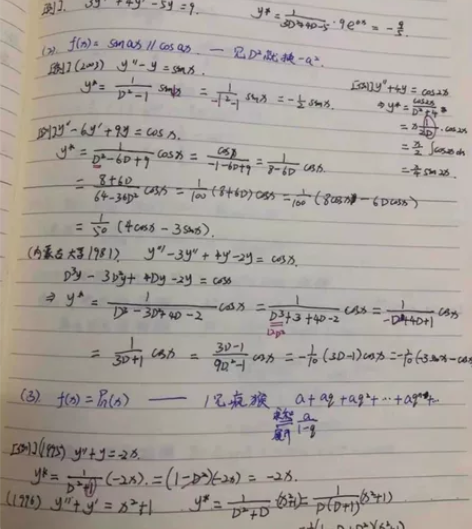 [例] 3y''+4y'-5y=9. y*=1/(3D²+4D-5)·9e^(0x)=-9/5.
(2) f(x)=sin ax // cos ax. — 见D²就换-a².
[例](2003) y''-y=sinx.
y*=1/(D²-1) sinx=1/(-1²-1) sinx=-1/2 sinx.
[例] y''+4y=cos2x
⇒ y*=cos2x/(D²+4)
=x·1/(2D)·cos2x
=x/2 ∫cos2x dx
=x/4 sin2x.
[例] y''-6y'+9y=cosx.
y*=1/(D²-6D+9) cosx=cosx/(-1-6D+9)=1/(8-6D) cosx.
=(8+6D)/(64-36D²) cosx=1/100 (8+6D)cosx=1/100 (8cosx-6Dcosx)
=1/50 (4cosx-3sinx).
(内蒙古大学1981). y'''-3y''+4y'-2y=cosx.
D³y-3D²y+4Dy-2y=cosx
⇒ y*=1/(D³-3D²+4D-2) cosx=1/(D³+3+4D-2) cosx=1/(-D+4D+1) cosx
=1/(3D+1) cosx=(3D-1)/(9D²-1) cosx=-1/10 (3D-1)cosx=-1/10(-3sinx-cosx
(3) f(x)=Pn(x) — a+aq+aq²+…+aqⁿ+…
a/(1-q)
[例](1995) y''+y=-2x.
y*=1/(D²+1) (-2x).=(1-D²)(-2x)=-2x.
(1996) y''+y'=x²+1 y*=1/(D²+D) (x²+1)=1/(D(D+1)) (x²+1)